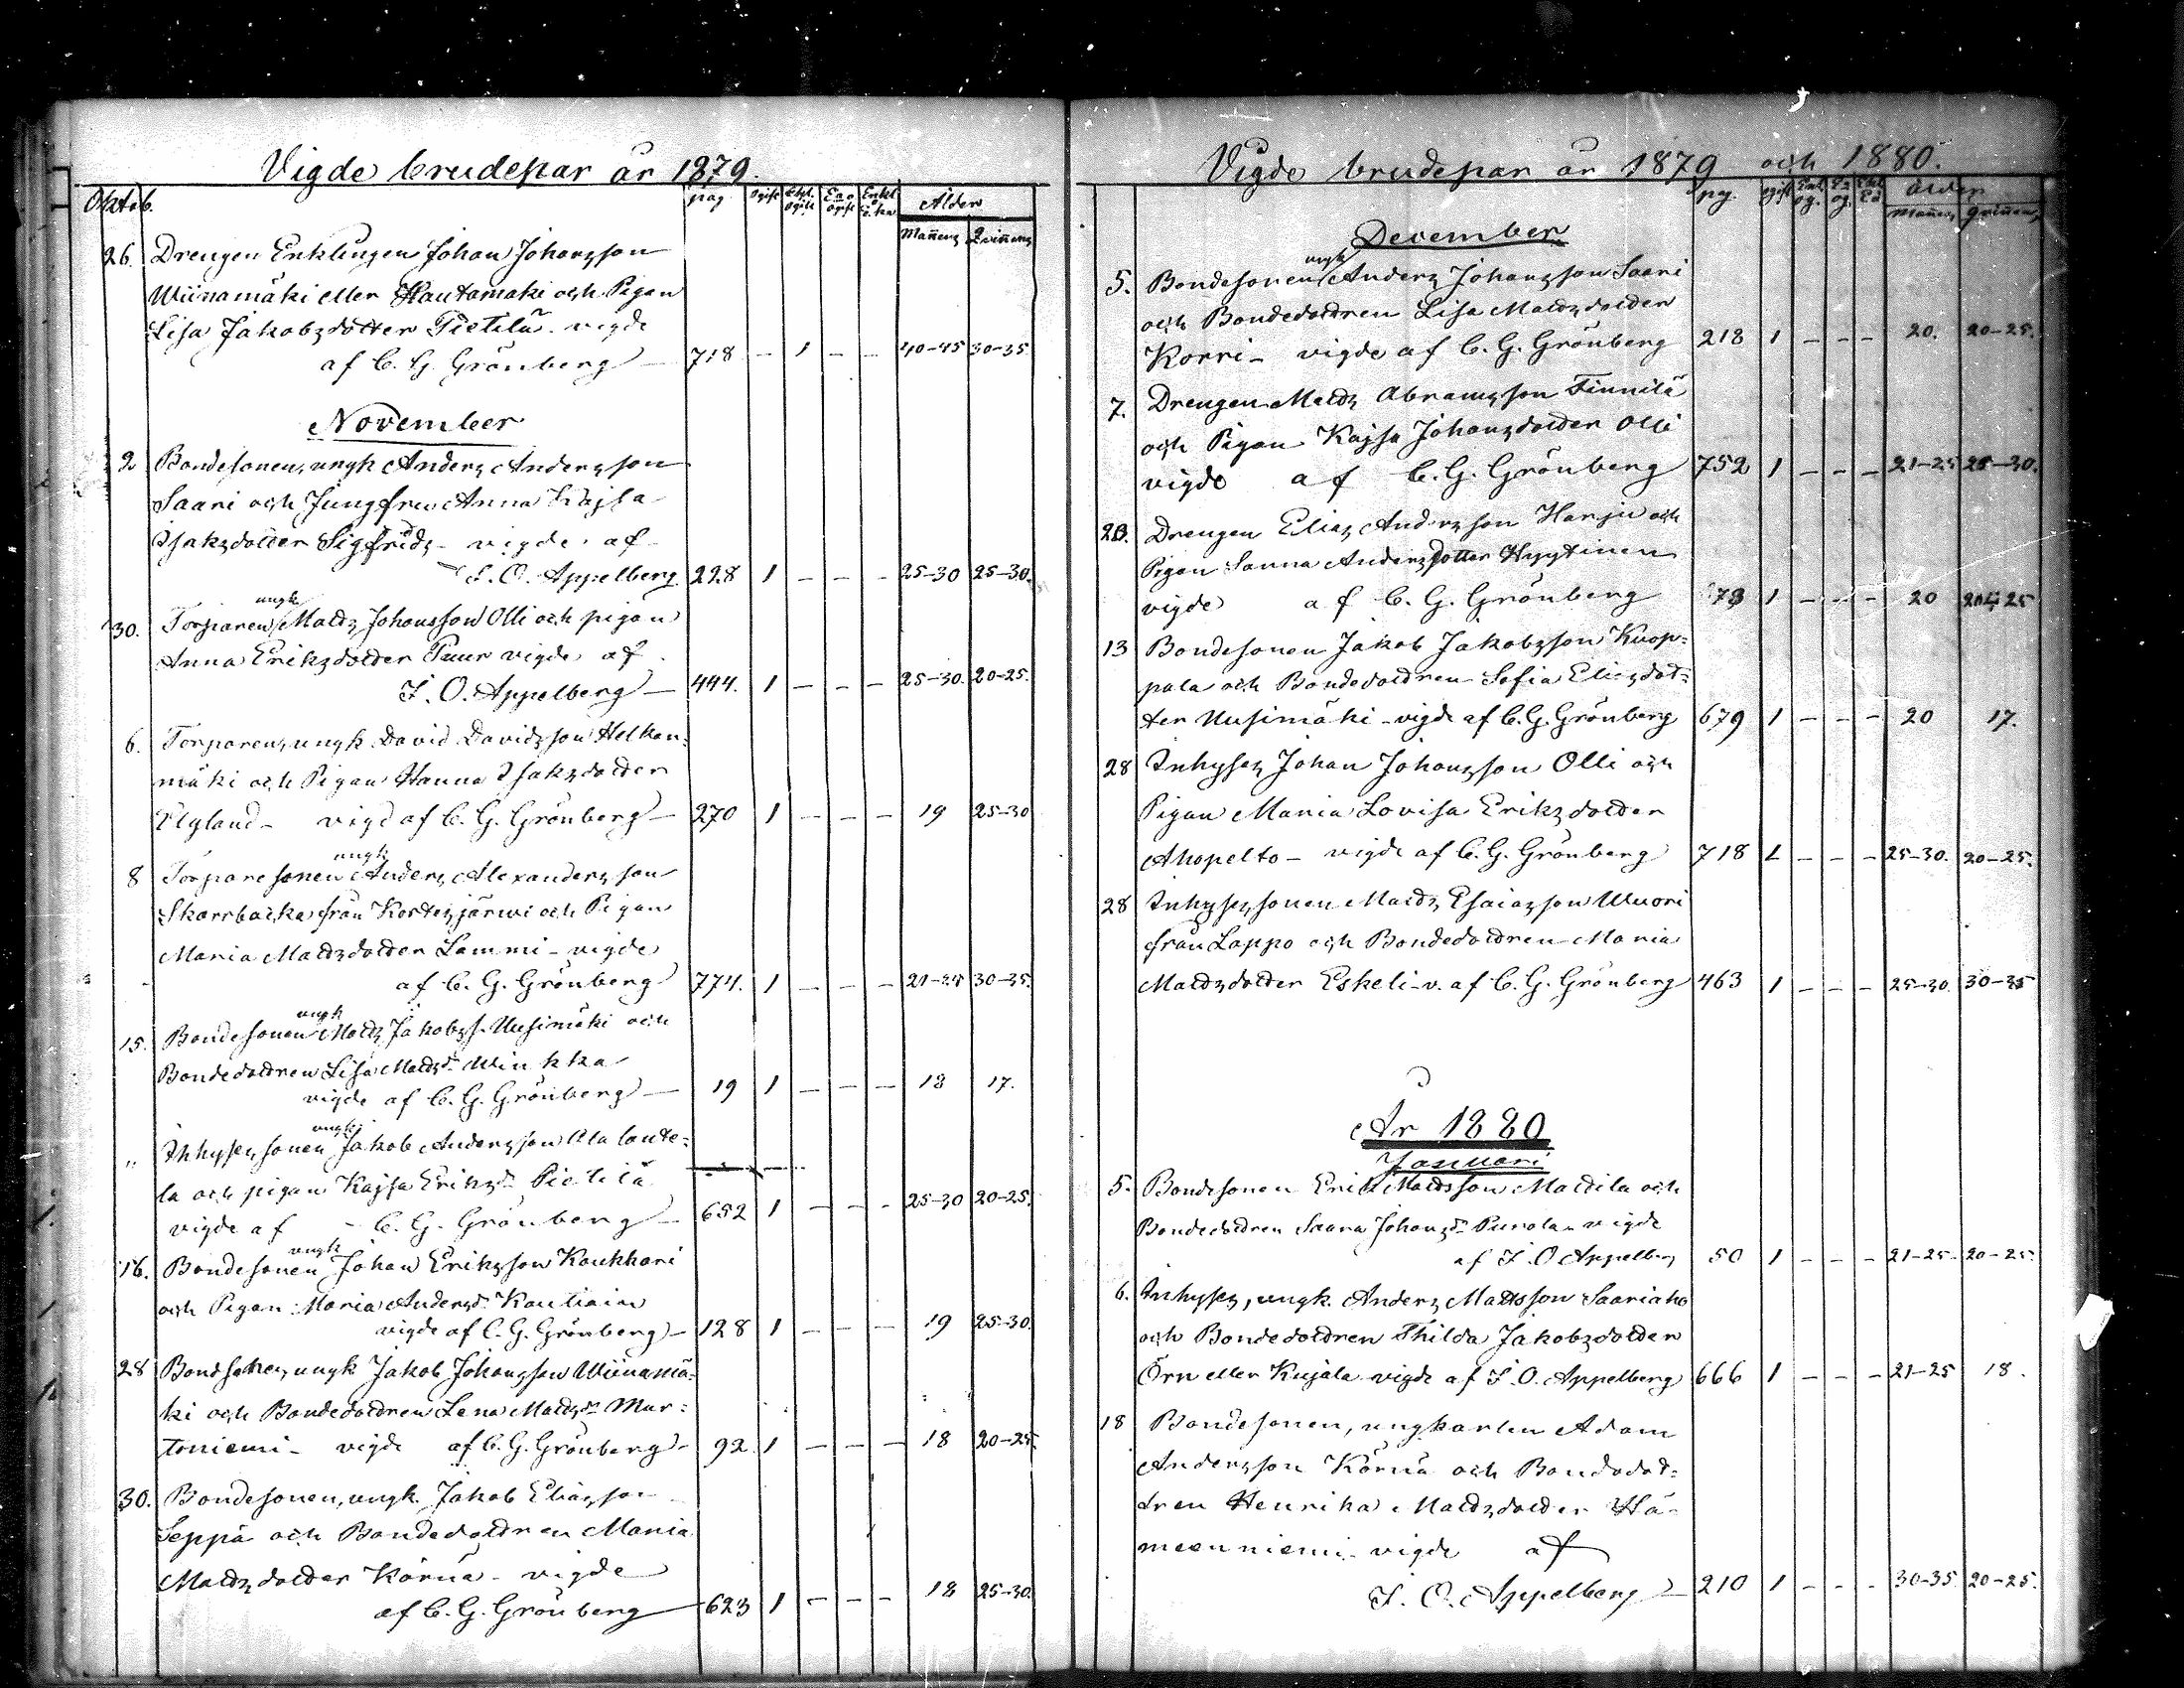 Vigde brudepar år 1879.
Oktob. pag. Ogift Enkl. o ogift E. o. o. ogift Enkl. o. Enka Ålder
Mañens Qviñens
26. Drengen Enklingen Johan Johansson
Wiinamäki eller Hautamäki och Pigan
Lisa Jakobsdotter Pietilä - vigde
af C. G. Grönberg — 718 — 1 — — 40-45 30-35
November
2 Bondesonen, ungk Anders Andersson
Saari och Jungfrun Anna Kajsa
Isaksdotter Sigfrids - vigde af
F. O. Appelberg. 228 1 — — — 25-30 25-30.
30. Torparen ungk Matts Johansson Olli och pigan
Anna Eriksdotter Puur vigde af
F. O. Appelberg — 444. 1 — — — 25-30. 20-25.
6. Torparens, ungk David Davidsson Helkan-
mäki och Pigan Hanna Isaksdotter
Elgland - vigd af C. G. Grönberg — 270 1 — — — 19 25-30
8 Torparesonen ungk Anders Alexandersson
Skarrbacka från Kortesjärwi och Pigan
Maria Mattsdotter Lammi - vigde
af C. G. Grönberg 774. 1 — — — 21-25 30-35.
15. Bondesonen ungk Matts Jakobss. Uusimäki och
Bondedottren Lisa Mattsdr Winkka
vigde af C. G. Grönberg — 19 1 — — — 18 17.
„ Inhysessonen ungk Jakob Andersson Ala laute-
la och pigan Kajsa Eriksdr Pietilä
vigde af - C. G. Grönberg — 652 1 — — — 25-30 20-25.
16. Bondesonen ungk Johan Eriksson Kaukkari
och Pigan Maria Andersdr Kautiain
vigde af C. G. Grönberg — 128 1 — — — 19 25-30.
28 Bondsonen, ungk Jakob Johansson Wiinamä-
ki och Bondedottren Lena Mattsdr Mur-
toniemi - vigde af C. G. Grönberg - 92. 1 — — — 18 20-25.
30. Bondesonen, ungk. Jakob Eliasson
Seppä och Bondedottren Maria
Mattsdotter Körnä - vigde
af C. G. Grönberg — 623 1 — — — 18 25-30.
Vigde brudepar år 1879 och 1880.
pg. ogift Enkl og. E. o og. Enkl Ea Ålder
Mañens Qviñens
December
5. Bondesonen ungk Anders Johansson Saari
och Bondedottren Lisa Mattsdotter
Korri - vigde af C. G. Grönberg 218 1 — — — 20. 20-25.
7. Drengen Matts Abramsson Finnilä
och Pigan Kajsa Johansdotter Olli
vigde af C. G. Grönberg 752 1 — — — 21-25 25-30.
Drengen Elias Andersson Harju och
Pigan Sanna Andersdotter Hyytinen
vigde af C. G. Grönberg 1 — — — 20
13 Bondesonen Jakob Jakobsson Kuop-
pala och Bondedottren Sofia Eliasdot-
ter Uusimäki - vigde af C. G. Grönberg 679 1 — — — 20 17.
28 Inhyses Johan Johansson Olli och
Pigan Maria Lovisa Eriksdotter
Ahopelto - vigde af C. G. Grönberg 718 1 — — — 25-30. 20-25.
28 Inhysessonen Matts Esaiasson Wuori
från Lappo och Bondedottren Maria
Mattsdotter Eskeli - v. af C. G. Grönberg 463 1 — — — 25-30. 30-35
År 1880
Januari
5. Bondesonen Erik Mattsson Mattila och
Bondedottren Saara Johansdr Purola - vigde
af F. O Appelberg 50 1 — — — 21-25. 20-25.
6. Inhyses, ungk. Anders Mattsson Saariaho
och Bondedottren Thilda Jakobsdotter
Örn eller Kujala vigde af F. O. Appelberg 666 1 — — — 21-25 18.
18 Bondesonen, ungkarlen Adam
Andersson Körnä och Bondedot-
tren Henrika Mattsdotter Hä-
meenniemi - vigde af
F. O. Appelberg — 210 1 — — — 30-35. 20-25.